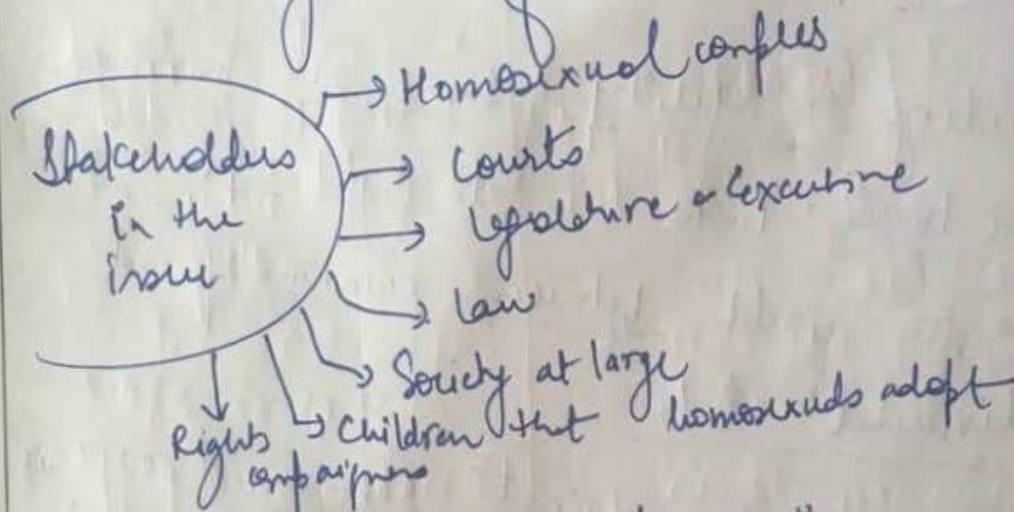 Stakeholders
in the
issue
Homosexual couples
Courts
Legislature & executive
Law
Society at large
Children that homosexuals adopt
Rights
campaigners